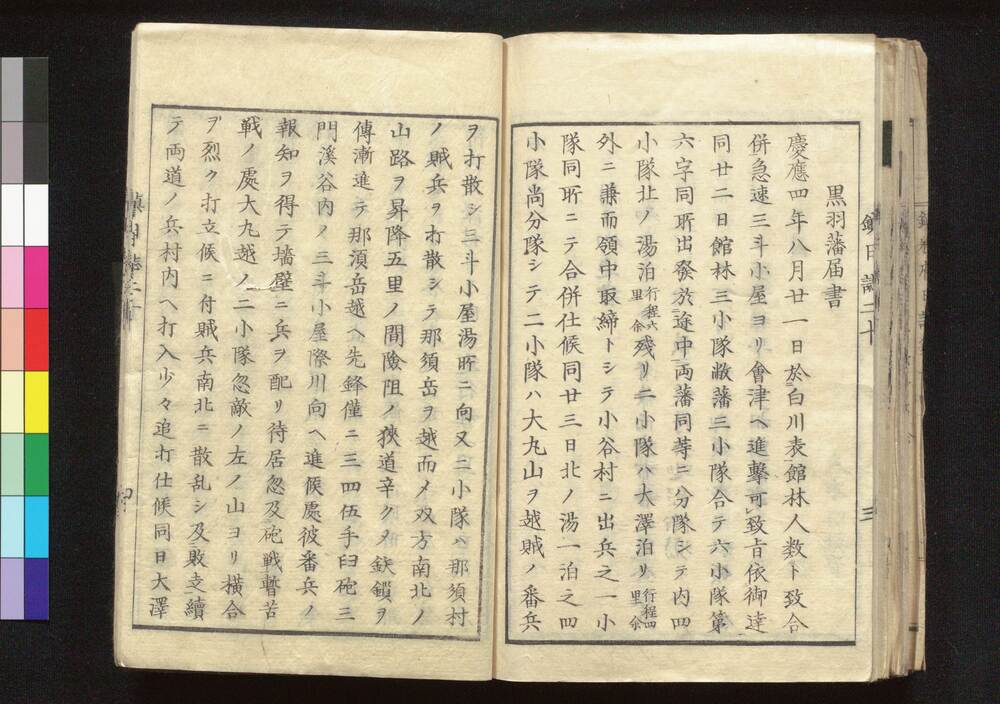 黒羽藩届書
慶應四年八月廿一日於白川表館林人数ト致合
併急速三斗小屋ヨリ會津ヘ進撃可致旨依御達
同廿二日館林三小隊敝藩三小隊合テ六小隊第
六字同所出發於途中両藩同等ニ分隊シテ内四
小隊北ノ湯泊行程六里余残リ二小隊ハ大澤泊リ行程四里余
外ニ兼而領中取締トシテ小谷村ニ出兵之一小
隊同所ニテ合併仕候同廿三日北ノ湯一泊之四
小隊尚分隊シテ二小隊ハ大丸山ヲ越賊ノ番兵
ヲ打散シ三斗小屋湯所ニ向又二小隊ハ那須村
ノ賊兵ヲ打散シテ那須岳ヲ越而〆双方南北ノ
山路ヲ昇降五里ノ間險阻ノ狹道辛ク〆鉄鎖ヲ
傳漸進テ那須岳越ヘ先鋒僅ニ三四伍手臼砲三
門溪谷内ノ三斗小屋際川向ヘ進候處彼番兵ノ
報知ヲ得テ墻壁ニ兵ヲ配リ待居忽及砲戦暫苦
戦ノ處大丸越ノ二小隊忽敵ノ左ノ山ヨリ横合
ヲ烈ク打立候ニ付賊兵南北ニ散乱シ及敗走續
テ両道ノ兵村内ヘ打入少々追打仕候同日大澤